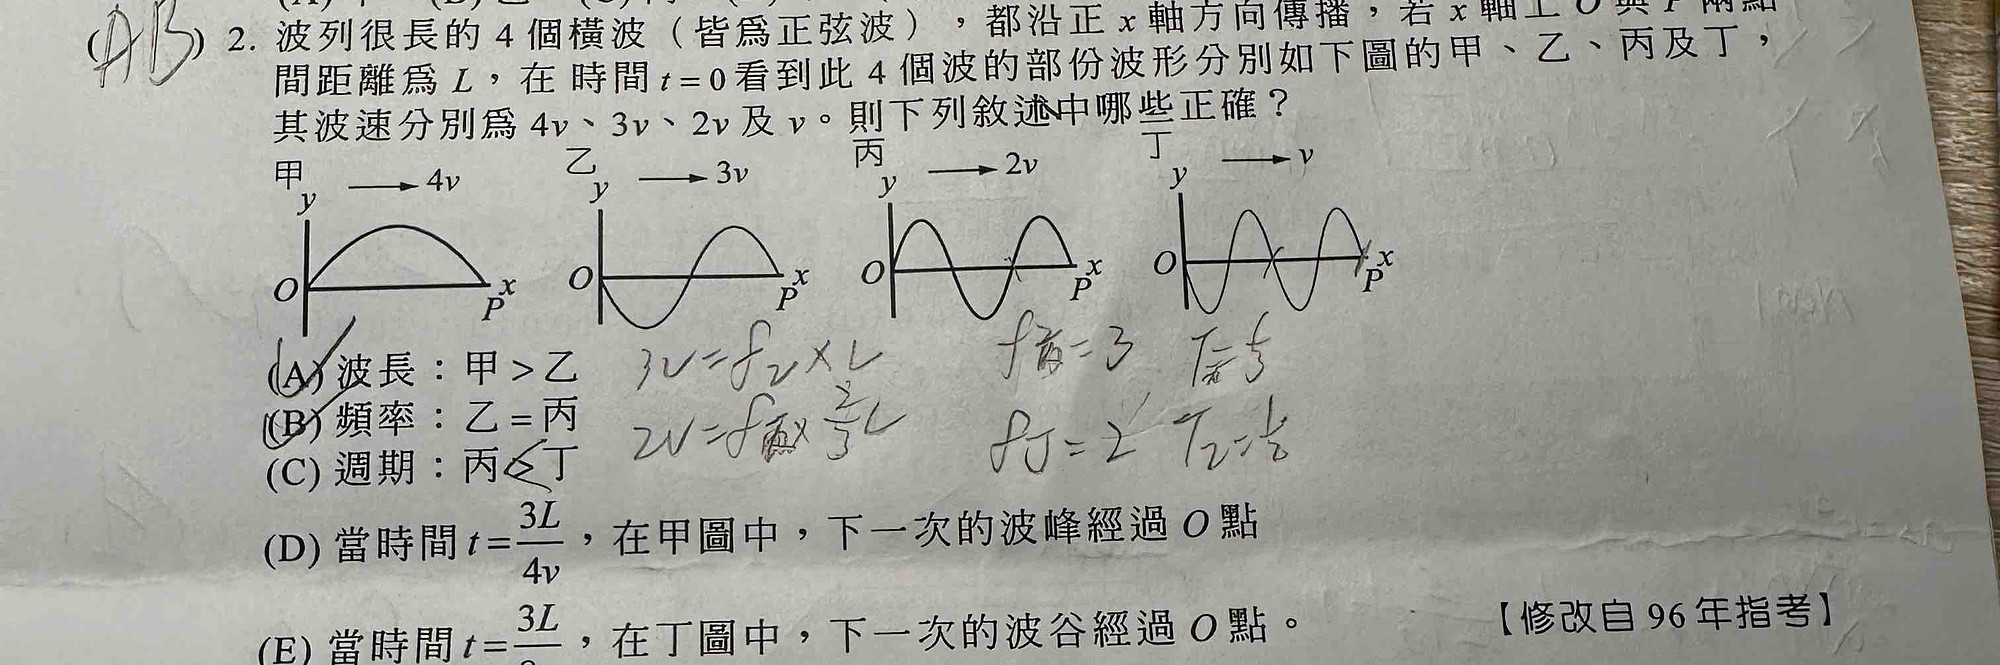 (AB) 2. 波列很長的 4 個橫波（皆為正弦波），都沿正 x 軸方向傳播，若 x 軸上 O 與 P 兩點
間距離為 L，在時間 t = 0 看到此 4 個波的部份波形分別如下圖的甲、乙、丙及丁，
其波速分別為 4v、3v、2v 及 v。則下列敘述中哪些正確？
甲 乙 丙 丁
y → 4v y → 3v y → 2v y → v
O P x O P x O P x O P x
(A) 波長：甲 > 乙
3v = f乙 × L
(B) 頻率：乙 = 丙
(C) 週期：丙 > 丁
(D) 當時間 t = 3L/4v，在甲圖中，下一次的波峰經過 O 點
(E) 當時間 t = 3L/，在丁圖中，下一次的波谷經過 O 點。
【修改自 96 年指考】